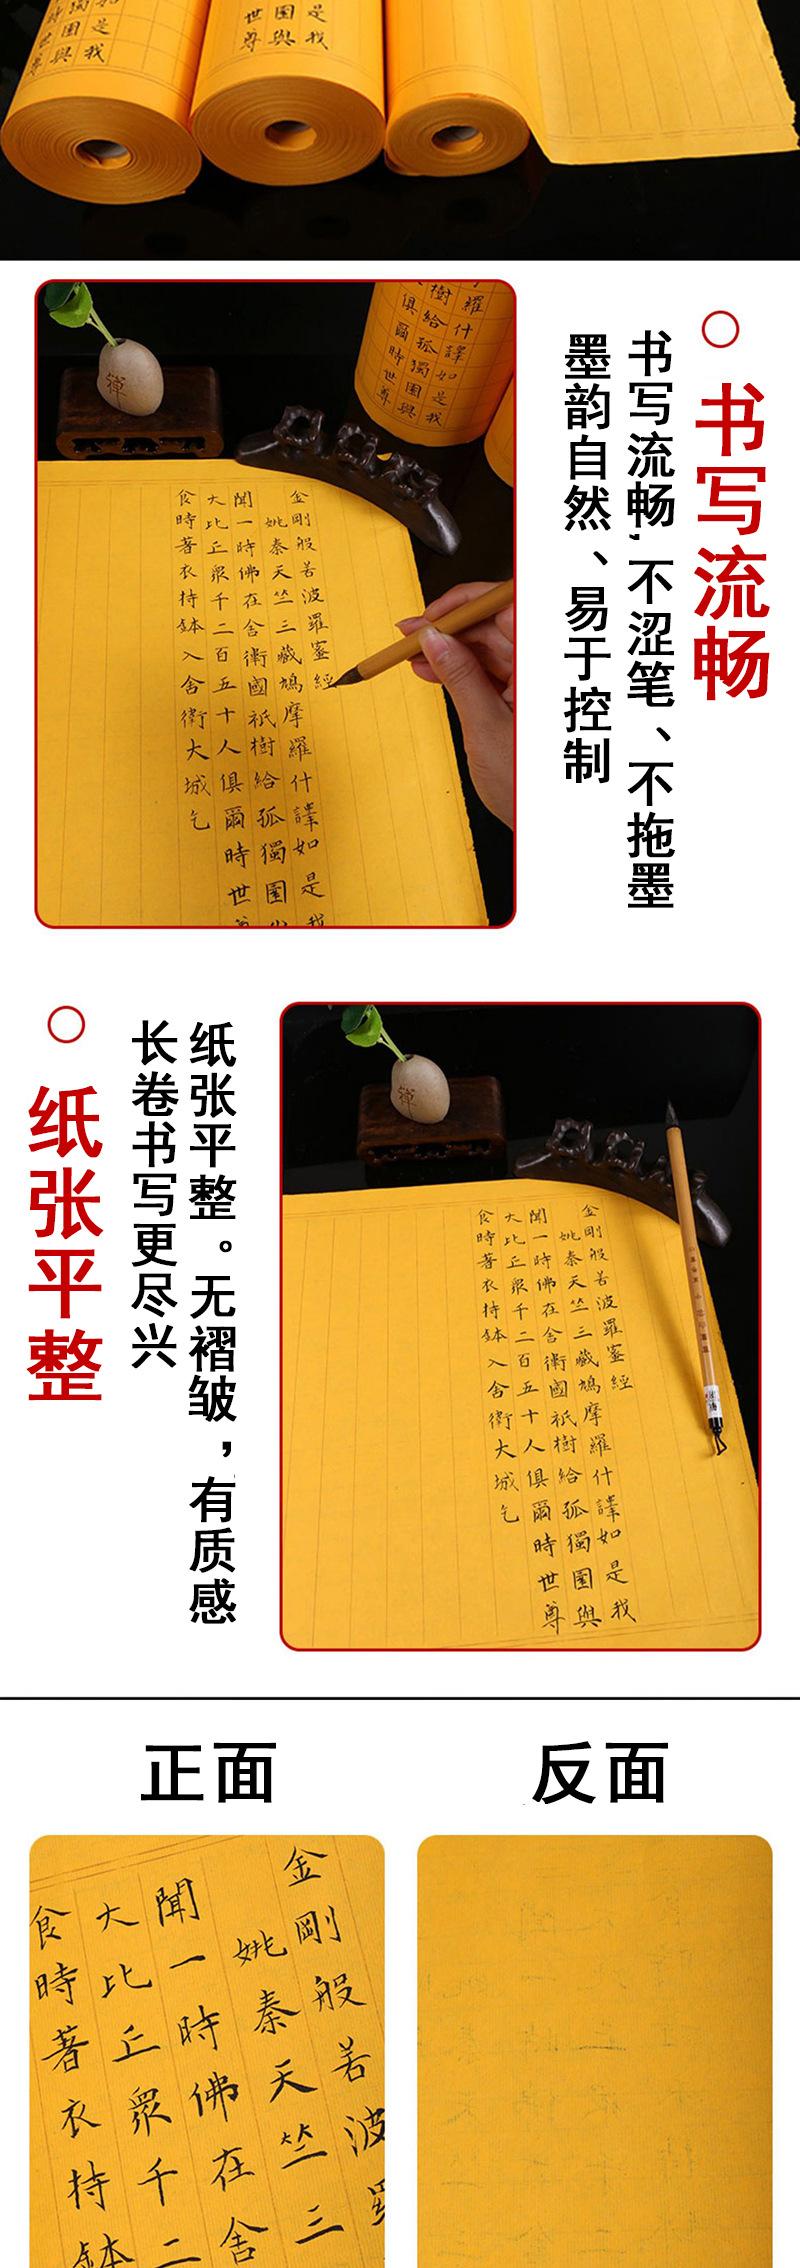 是我
圍與
世尊
書写流畅
书写流畅,不涩笔、不拖墨
墨韵自然、易于控制
禅
羅什譯如是我
樹給孤獨園與
俱爾時世尊
金剛般若波羅蜜經
姚秦天竺三藏鳩摩羅什譯如是我
聞一時佛在舍衛國祇樹給孤獨園
大比丘眾千二百五十人俱爾時世尊
食時著衣持鉢入舍衛大城乞
纸张平整
纸张平整。无褶皱,有质感
长卷书写更尽兴
禅
金剛般若波羅蜜經
姚秦天竺三藏鳩摩羅什譯如是我
聞一時佛在舍衛國祇樹給孤獨園與
大比丘眾千二百五十人俱爾時世尊
食時著衣持鉢入舍衛大城乞
正面
反面
金剛般若波羅
姚秦天竺三
聞一時佛在舍
大比丘眾千二
食時著衣持鉢